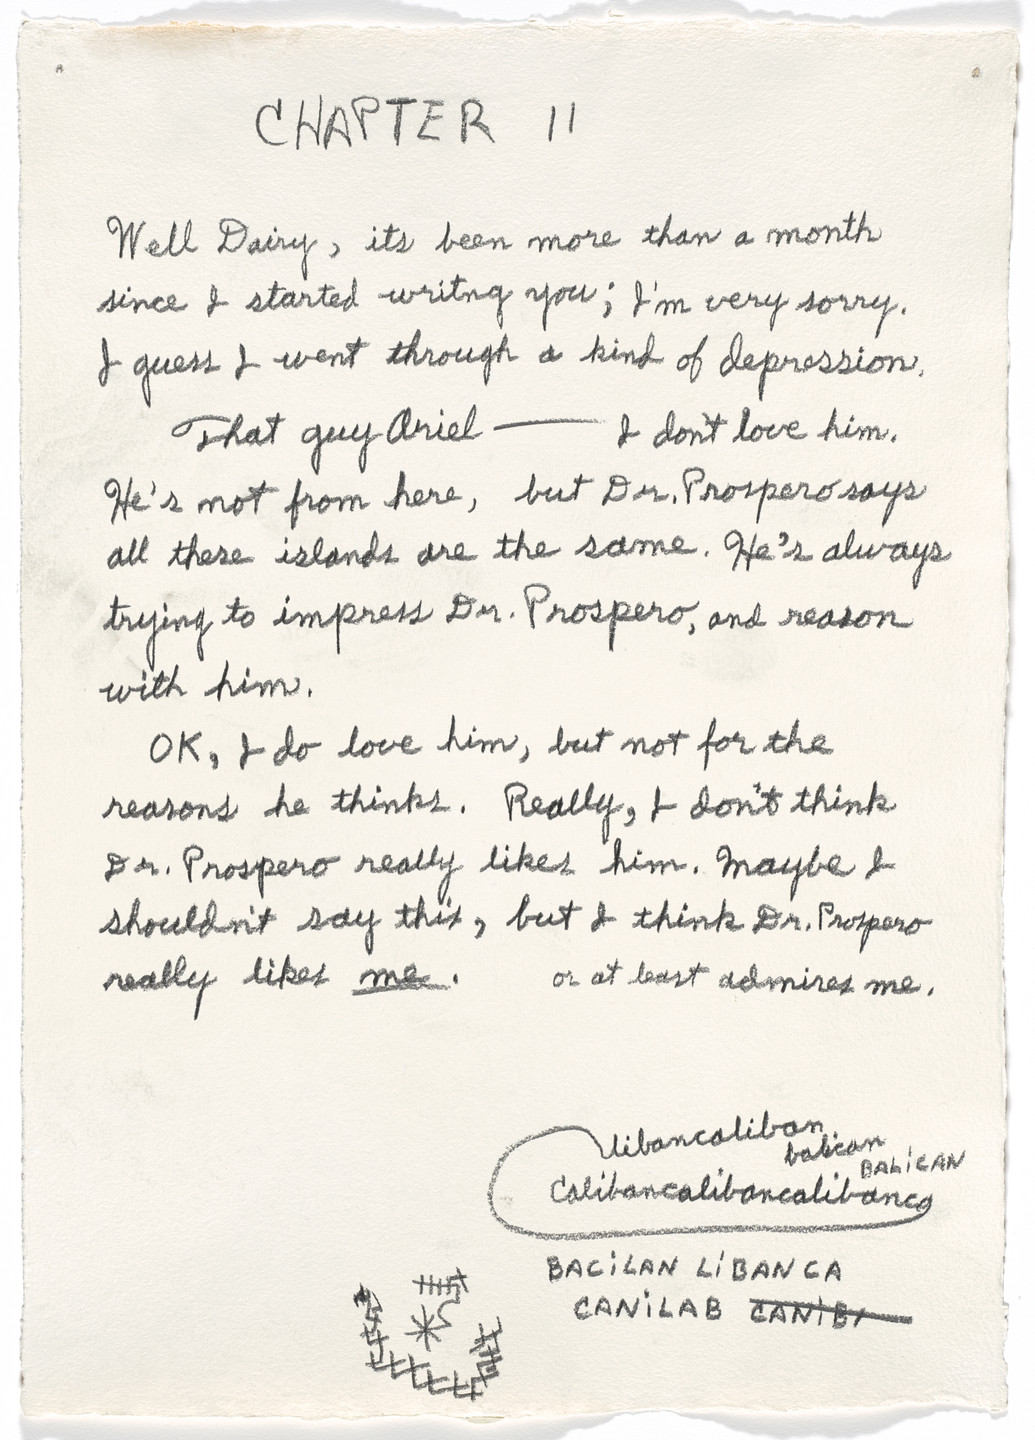 CHAPTER 11
Well Dairy, its been more than a month
since I started writng you; I'm very sorry.
I guess I went through a kind of depression.
That guy Ariel — I don't love him.
He's not from here, but Dr. Prospero says
all these islands are the same. He's always
trying to impress Dr. Prospero, and reason
with him.
OK, I do love him, but not for the
reasons he thinks. Really, I don't think
Dr. Prospero really likes him. Maybe I
shouldn't say this, but I think Dr. Prospero
really likes me. or at least admires me.
libancaliban
balican
BALiCAN
Calibancalibancalibanca
BACiLAN LiBANCA
CANiLAB CANiB